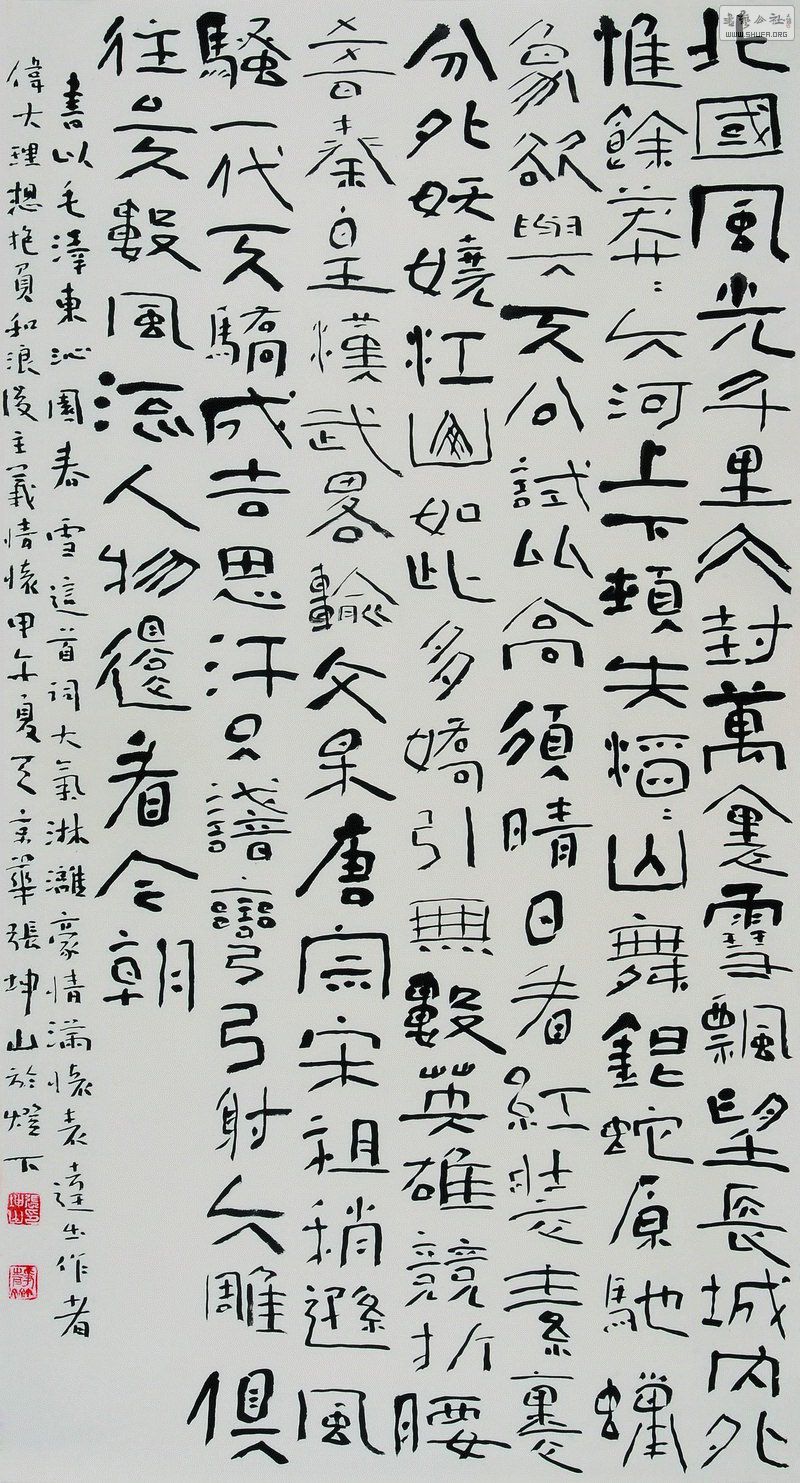 北國風光千里冰封萬裏雪飄望長城內外
惟餘莽〻大河上下頓失滔〻山舞銀蛇原馳蠟
象欲與天公試比高須晴日看紅裝素裹
分外妖嬈江山如此多嬌引無數英雄競折腰
惜秦皇漢武略輸文采唐宗宋祖稍遜風
騷一代天驕成吉思汗只識彎弓射大雕俱
往矣數風流人物還看今朝
書以毛澤東沁園春雪這首詞大氣淋漓豪情滿懷表達出作者
偉大理想抱負和浪漫主義情懷甲午夏天京華張坤山於燈下
书艺公社
WWW.SHUFA.ORG